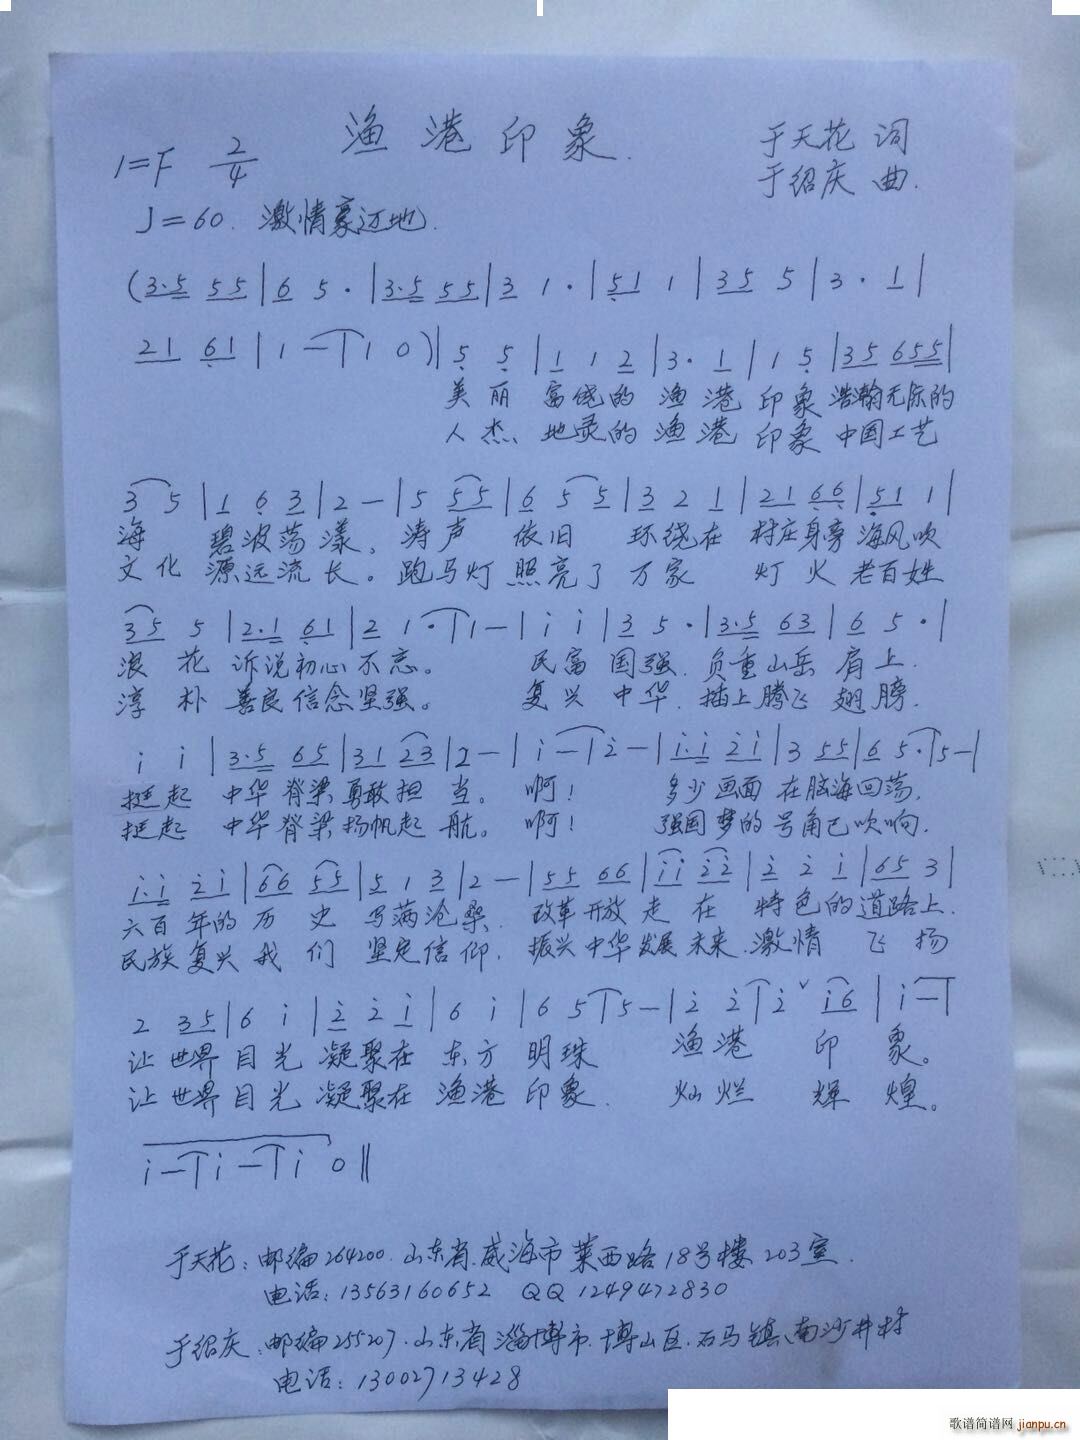 渔港印象.
1=F 2/4
于天花 词
于绍庆 曲.
♩=60. 激情豪迈地.
(3·5 55|6 5·|3·5 55|3 1·|51 1|35 5|3· 1|
21 61|1-|1 0)|5 5|1 1 2|3· 1|1 5|35 655|
美丽 富饶的 渔港 印象 浩瀚无际的
人杰 地灵的 渔港 印象 中国工艺
3 5|1 6 3|2-|5 55|6 5 5|3 2 1|21 66|51 1|
海 碧波荡漾, 涛声 依旧 环绕在 村庄身旁 海风吹
文化 源远流长。跑马灯 照亮了 万家 灯火 老百姓
35 5|2·1 61|2 1·|1-|i i|3 5·|3·5 63|6 5·|
浪花 诉说初心不忘。 民富 国强. 负重山岳 肩上.
淳朴 善良信念坚强。 复兴 中华. 插上腾飞 翅膀.
i i|3·5 65|31 23|2-|i-|2-|i·i 2i|3 55|6 5·|5-|
挺起 中华脊梁勇敢担当。啊! 多少画面 在脑海回荡,
挺起 中华脊梁扬帆起航。啊! 强国梦的 号角已吹响.
i·i 2i|66 55|5 1 3|2-|55 66|ii 22|2 2 i|65 3|
六百年的历史 写满沧桑. 改革开放走在 特色的道路上.
民族复兴我们 坚定信仰. 振兴中华发展未来.激情 飞扬
2 35|6 i|2 2 i|6 i|6 5|5-|2 2|2 ˅ i6|i-|
让世界目光 凝聚在 东方 明珠 渔港 印 象。
让世界目光 凝聚在 渔港 印象. 灿烂 辉 煌。
i-|i-|i 0‖
于天花:邮编264200.山东省.威海市莱西路18号楼203室.
电话:13563160652 QQ 1249472830
于绍庆.邮编255207.山东省淄博市.博山区.石马镇、南沙井村
电话:13002713428
歌谱简谱网 jianpu.cn